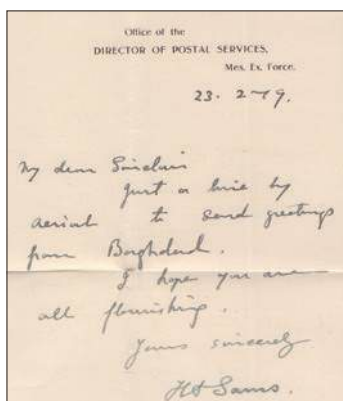 Office of the
DIRECTOR OF POSTAL SERVICES,
Mes. Ex. Force.
23. 2-19.
My dear Sinclair
Just a line by
aerial to send greetings
from Baghdad.
I hope you are
all flourishing.
Yours sincerely
HA Sams.